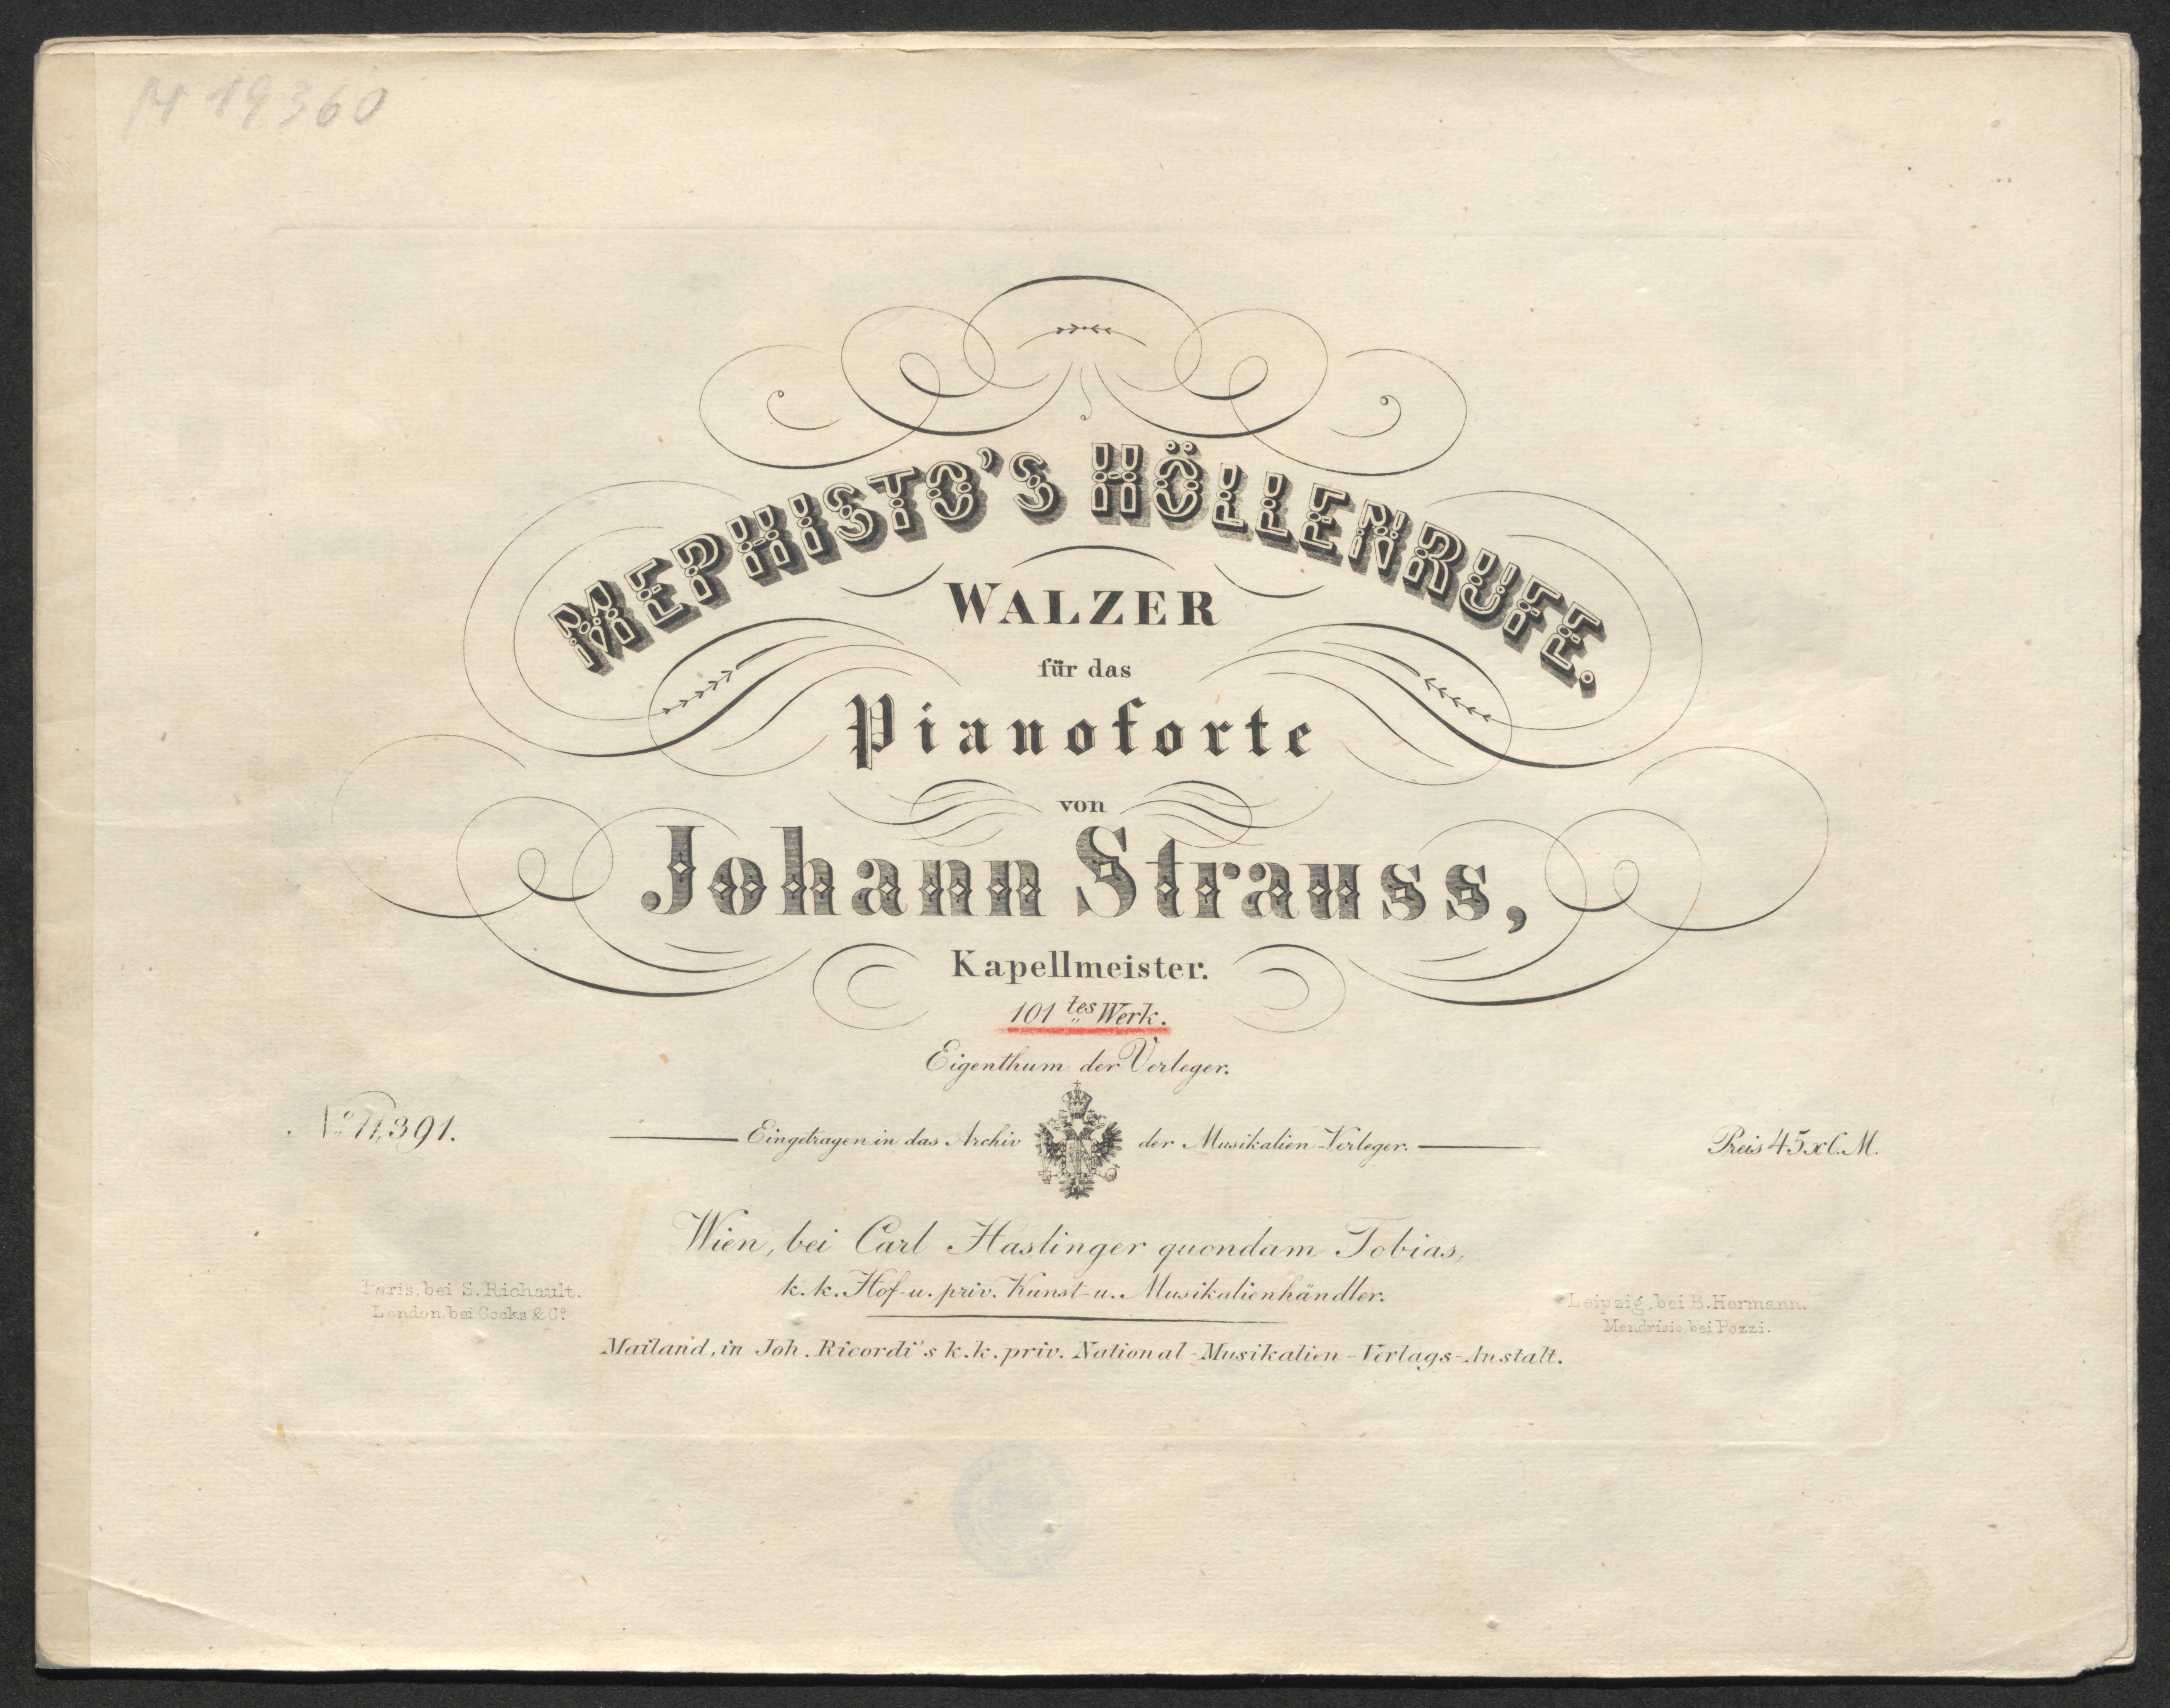 M 19360
MEPHISTO'S HÖLLENRUFE.
WALZER
für das
Pianoforte
von
Johann Strauss,
Kapellmeister.
101tes Werk.
Eigenthum der Verleger.
No 11,391.
Eingetragen in das Archiv der Musikalien-Verleger.
Preis 45 x C. M.
Wien, bei Carl Haslinger quondam Tobias,
k. k. Hof- u. priv. Kunst- u. Musikalienhändler.
Paris, bei S. Richault.
London, bei Cocks & Co.
Leipzig, bei B. Hermann.
Mendrisio, bei Pozzi.
Mailand, in Joh. Ricordi's k. k. priv. National-Musikalien-Verlags-Anstalt.